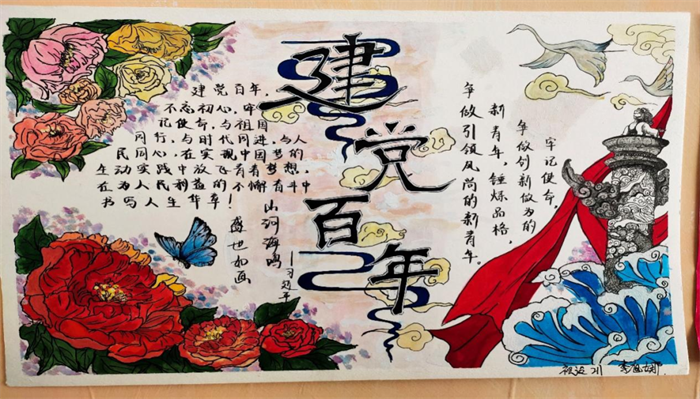 建党百年
建党百年，
不忘初心，牢
记使命，与祖国
同行，与时代同进，与人
民同心，在实现中国梦的
生动实践中放飞青春梦想，
在为人民利益的不懈奋斗中
书写人生华章！
——习近平
山河海
盛世如画
牢记使命，
争做创新做为的
新青年，锤炼品格，
争做引领风尚的新青年。
21